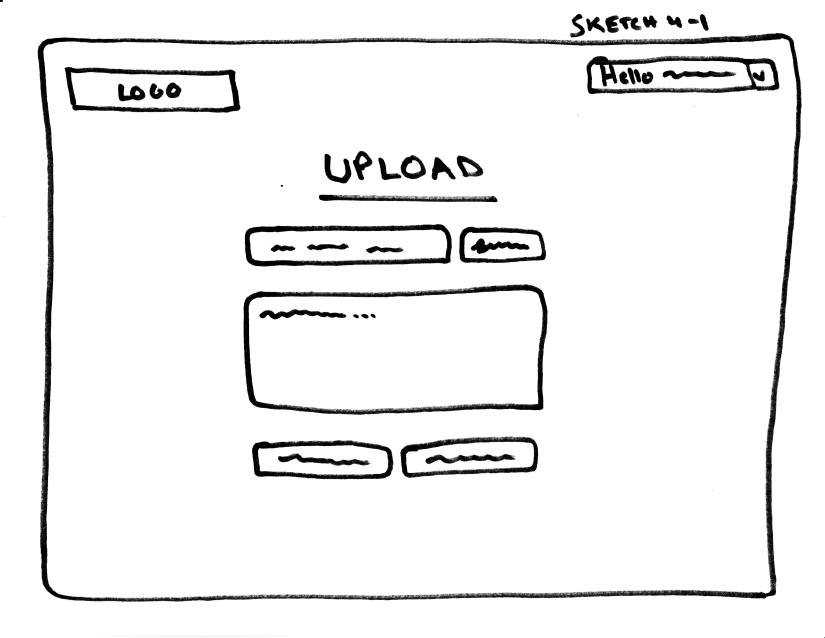 SKETCH 4-1
LOGO
Hello
UPLOAD